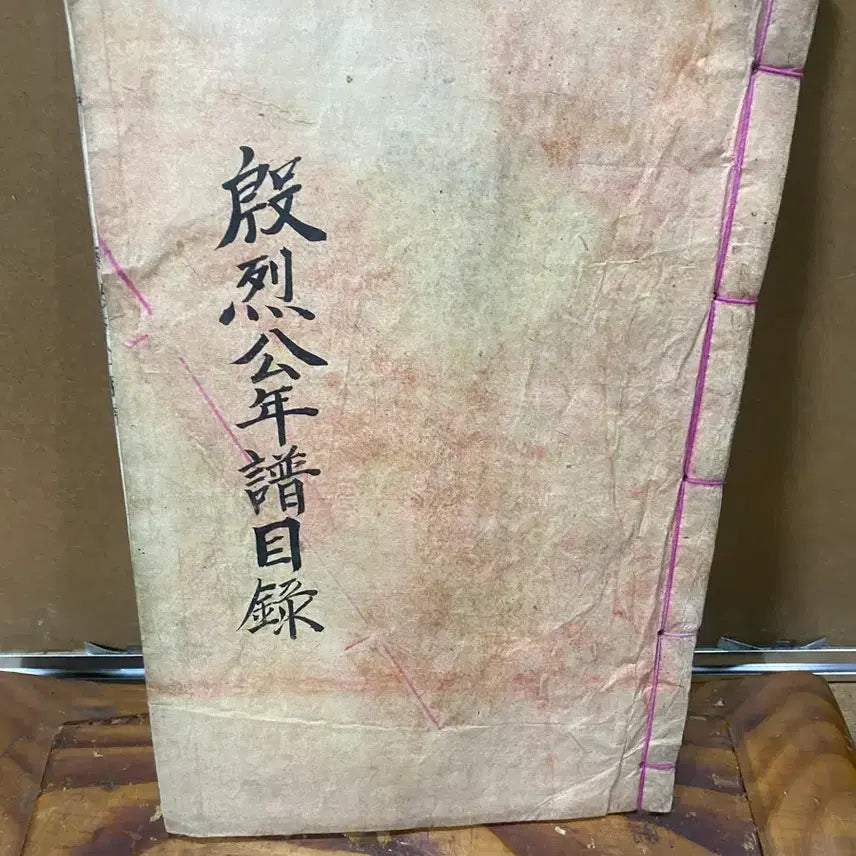 殷烈公年譜目錄